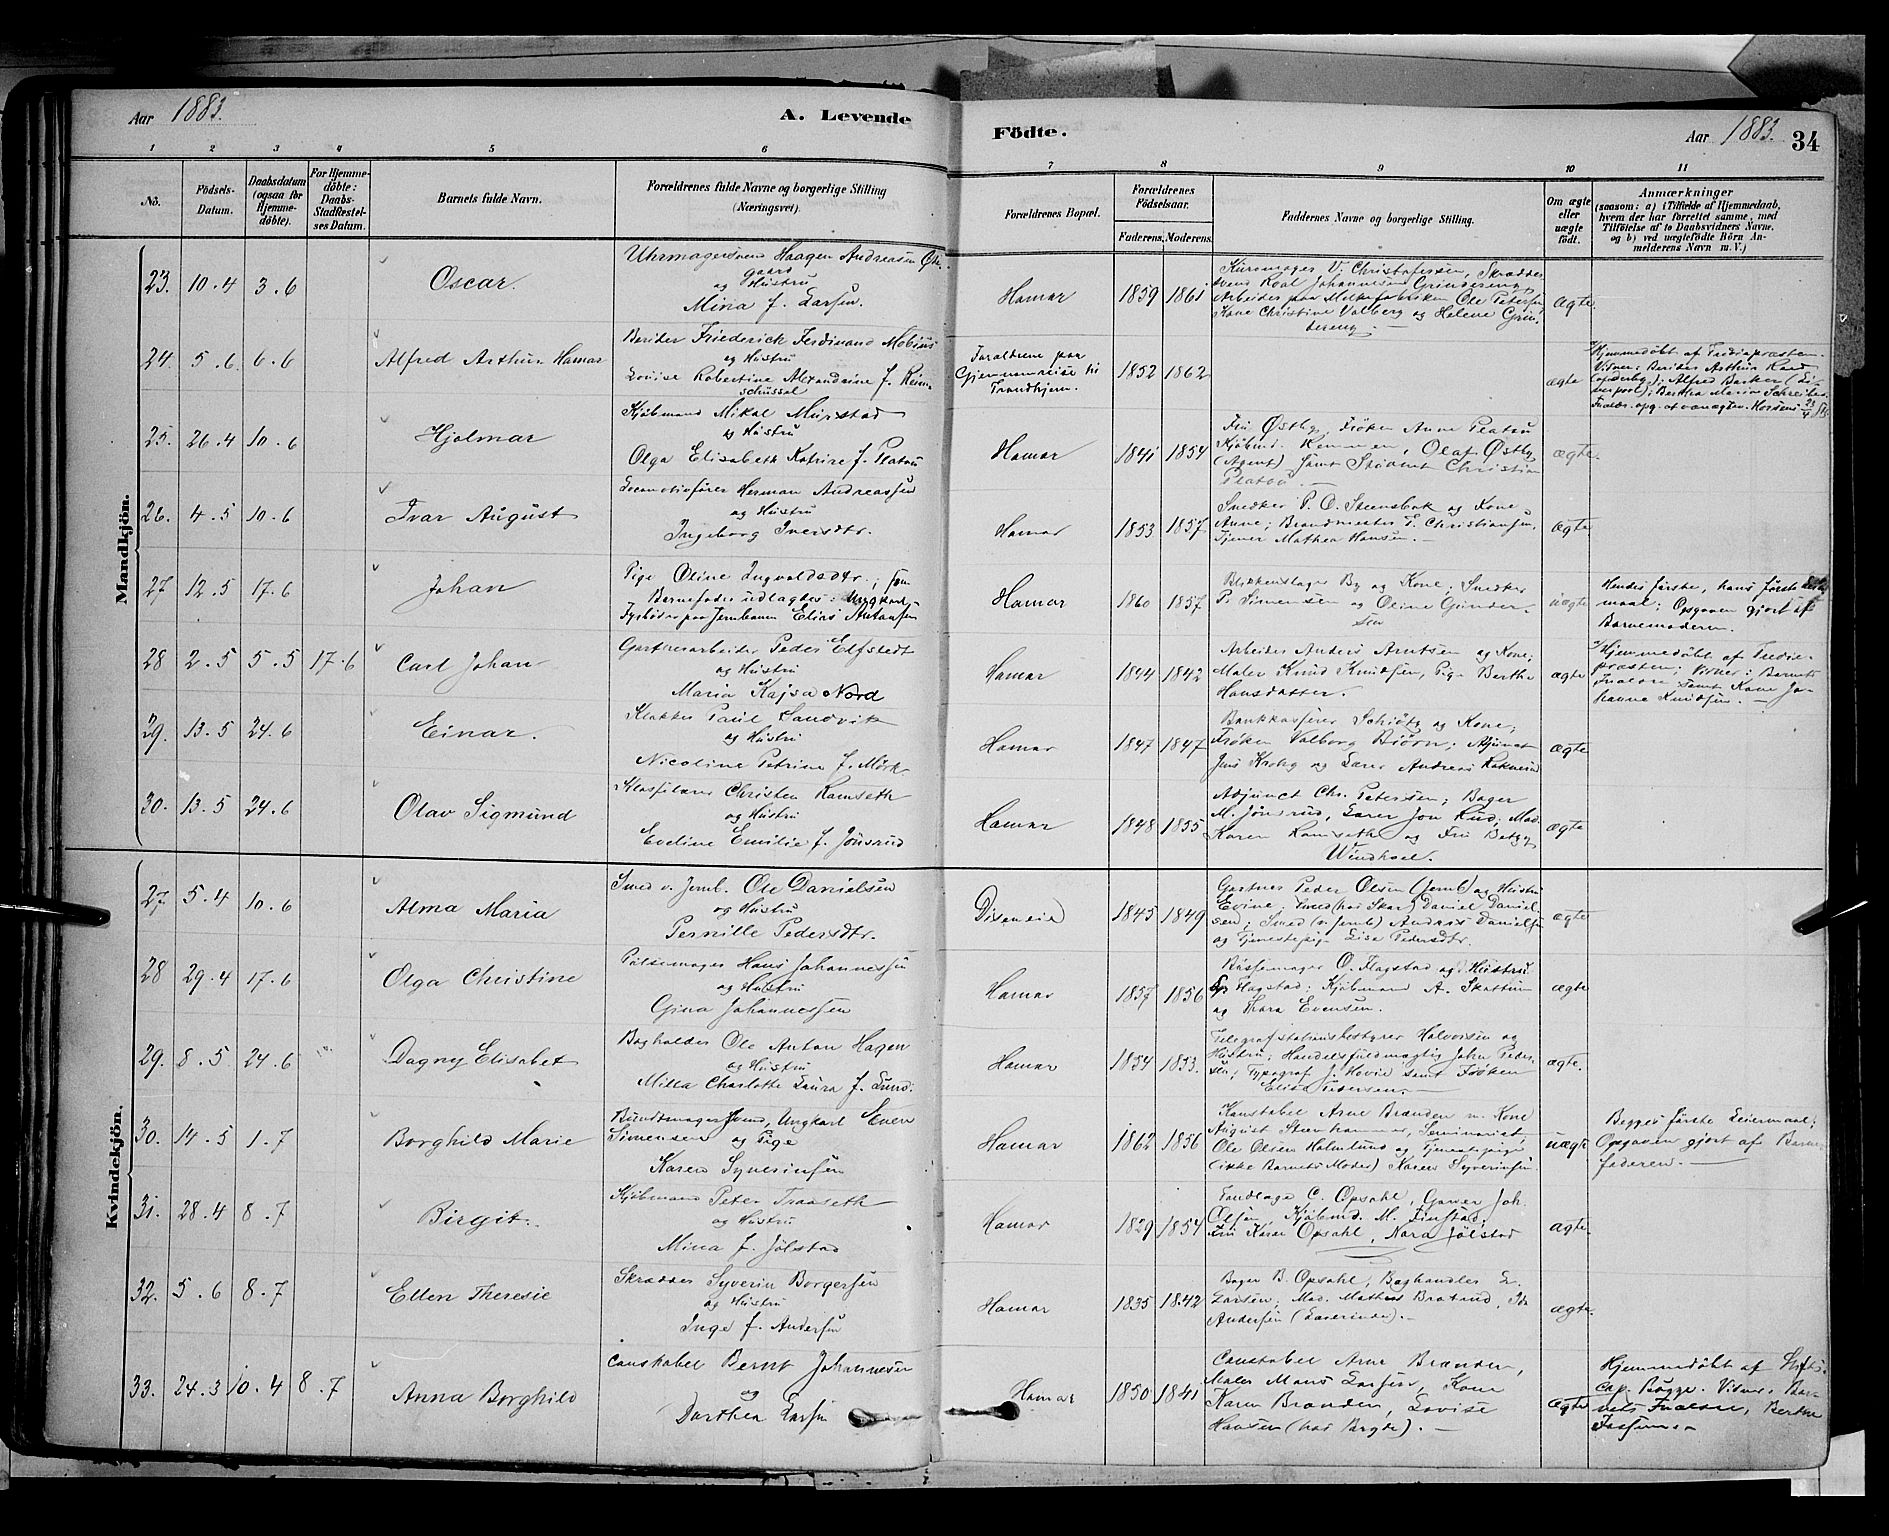 Aar 1883.
A. Levende
Födte.
Aar 1883.
34
1 2 3 4 5 6 7 8 9 10 11
No.
Födsels-Datum.
Daabsdatum (ogsaa for Hjemme-döbte).
For Hjemme-döbte: Daabs-Stadfæstelses Datum.
Barnets fulde Navn.
Forældrenes fulde Navne og borgerlige Stilling (Næringsvei).
Forældrenes Bopæl.
Forældrenes Födselsaar.
Faderens. Moderens.
Faddernes Navne og borgerlige Stilling.
Om ægte eller uægte födt.
Anmærkninger
(saasom: a) i Tilfælde af Hjemmedaab, hvem der har forrettet samme, med Tilföielse af to Daabsvidners Navne, og b) ved uægtefödte Börn Anmelderens Navn m. V.)
Mandkjön.
23. 10.4 3.6 Oscar.
Uhrmagersvend Haagen Andreasen Øde-
gaard
og Hustru
Mina f. Larsen.
Hamar 1859 1861
Kurvmager V. Christofersen, Skrædder
svend Roal Johannesen Grindereng,
Arbeider paa Melkefabriken Ole Petersen,
Kone Christine Valberg og Helene Grin-
dereng.
Ægte.
24. 5.6. 6.6 Alfred Arthur Hamar
Berider Friederick Ferdinand Mobius
og Hustru
Louise Robertine Alexandrine f. Rein-
schüssel
Forældrene paa
Gjennemreise til
Trondhjem.
1852 1862
ægte
Hjemmedøbt af Trediepræsten.
Vidner: Berider Arthur Rand
Alfred Barker (Li-
verpool); Bertha Maria
25. 26.4 10.6 Hjalmar
Kjøbmand Mikal Mürstad
og Hustru
Olga Elisabeth Katrine f. Platou
Hamar 1841 1854
Fru Østby, Frøken Anne Platou
Kjøbmd. Olaf Østby
(Agent) samt Student Christian
Platou.
ægte.
26. 4.5 10.6 Ivar August
Locomotivfører Herman Andreassen
og Hustru
Ingeborg Iversdtr.
Hamar 1853 1857
Snedker P. O. Steensbak og Kone
Anne; Brandmester T. Christiansen,
Tjener Mathea Hansen.
Ægte
27 12.5 17.6 Johan
Pige Oline Ingvaldsdtr.; som
Barnefader udlagdes: Ungkarl
Fyrbøder paa Jernbanen Elias Antonsen
Hamar 1860 1857
Blikkenslager By og Kone; Snedker
P. Simensen og Oline Gunder-
sen
uægte
Hendes første, hans første Leier-
maal; Opgaven gjort af
Barnemoderen.
28 2.5 5.5 17.6 Carl Johan
Gartnerarbeider Peder Elfstedt
og Hustru
Maria Kajsa Nord
Hamar 1844 1842
Arbeider Anders Arntsen og Kone;
Maler Knud Knudsen, Pige Berthe
Hansdatter.
ægte
Hjemmedøbt af Tredie-
præsten; Vidner: Barnets
Forældre samt Kone Jo-
hanne Knudsen.
29. 13.5 24.6 Einar.
Klokker Paul Sandvik
og Hustru
Nicoline Petrine f. Mørk
Hamar 1847 1847
Bankkasserer Schiøtz og Kone,
Frøken Valborg Biørn; Adjunct
Jens Krohg og Lærer Andreas Rokneud
ægte
30. 13.5 24.6 Olav Sigmund
Klasselærer Christen Ramseth
og Hustru
Eveline Emilie f. Jönsrud
Hamar 1848 1855
Adjunct Chr. Petersen; Bager
M. Jönsrud, Lærer Jon Rud; Mad.
Karen Ramseth og Fru Betzy
Windhoel.
ægte
Kvindekjön.
27. 5.4 10.6 Alma Maria
Smed v. Jernb. Ole Danielsen
og Hustru
Pernille Pedersdtr.
Disenvie 1845 1849
Gartner Peder Olsen (Jernb) og Hustru
Evine; Smed (hos Skar) Daniel Daniel-
sen; Smed (v. Jernb) Andreas Danielsen
og Tjenestepige Lise Pedersdtr.
ægte
28 29.4 17.6 Olga Christine
Pølsemager Hans Johannessen
og Hustru
Gina Johannessen
Hamar 1857 1856
Bøssemager O. Flagstad og Hustru
Flagstad; Kjøbmand A. Skattum
og Thora Evensen.
ægte
29. 8.5 24.6 Dagny Elisabet
Bogholder Ole Anton Hagen
og Hustru
Milla Charlotte Laura f. Lund.
Hamar 1854 1853.
Telegrafstationsbestyrer Halvorsen og
Hustru; Handelsfuldmægtig John Peder-
sen; Typograf J. Hovie samt Frøken
Elise Pedersen.
ægte.
30. 14.5 1.7 Borghild Marie
Bundtmagersvend, Ungkarl Even
Simensen og Pige
Karen Syverinsen
Hamar 1862 1856
Konstabel Arne Brænden m. Kone
August Steenhammer, Seminarist,
Ole Olsen Holmlund og Tjenestepige
(ikke Barnets Moder) Karen Syverinsen.
uægte
Begges første Leiermaal;
Opgaven gjort af Barne-
faderen.
31. 28.4 8.7 Birgit.
Kjøbmand Peter Traaseth
og Hustru
Mina f. Jølstad
Hamar 1829 1854
Tandlæge C. Opsahl, Garver Joh.
Olsen, Kjøbmd. M. Finstad,
Fru Karen Opsahl, Nora Jølstad
ægte
32. 5.6 8.7 Ellen Theresie
Skrædder Syverin Borgersen
og Hustru
Inge f. Andersen
Hamar 1835 1842
Bager B. Opsahl, Boghandler L.
Larsen; Mad. Mathea Bratrud, Ida
Andersen (Lærerinde).
ægte.
33. 24.3 10.4 8.7 Anna Borghild
Constabel Bernt Johannesen
og
Dorthea Larsen
Hamar 1850 1841
Constabel Arne Brænden,
Maler Mons Larsen, Kone
Karen Brænden, Lovise
Hansen (hos Borgde).
Ægte
Hjemmedøbt af Stifts-
cap. Bugge. Vidner: Bar-
nets Forældre, Berthe